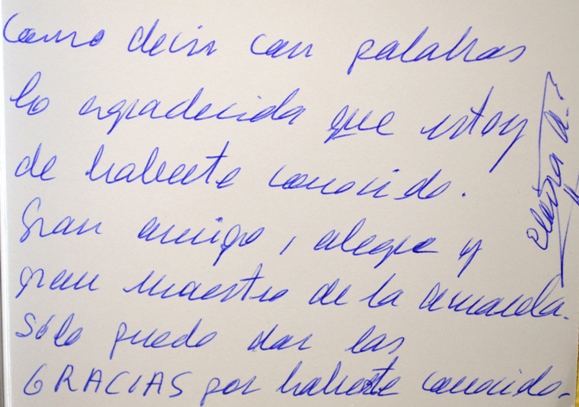 Como decir con palabras
lo agradecida que estoy
de haberte conocido.
Gran amigo, alegre y
gran maestro de la
Sólo puedo dar las
GRACIAS por haberte conocido.
Elvira